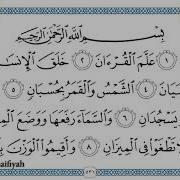 بِسْمِ اللَّهِ الرَّحْمَٰنِ الرَّحِيمِ
١ عَلَّمَ الْقُرْءَانَ ٢ خَلَقَ الْإِنسَ
بَيَانَ ٤ الشَّمْسُ وَالْقَمَرُ بِحُسْبَانٍ ٥
يَسْجُدَانِ ٦ وَالسَّمَاءَ رَفَعَهَا وَوَضَعَ الْمِي
لَّا تَطْغَوْا فِي الْمِيزَانِ ٨ وَأَقِيمُوا الْوَزْنَ بِ
٥٣١